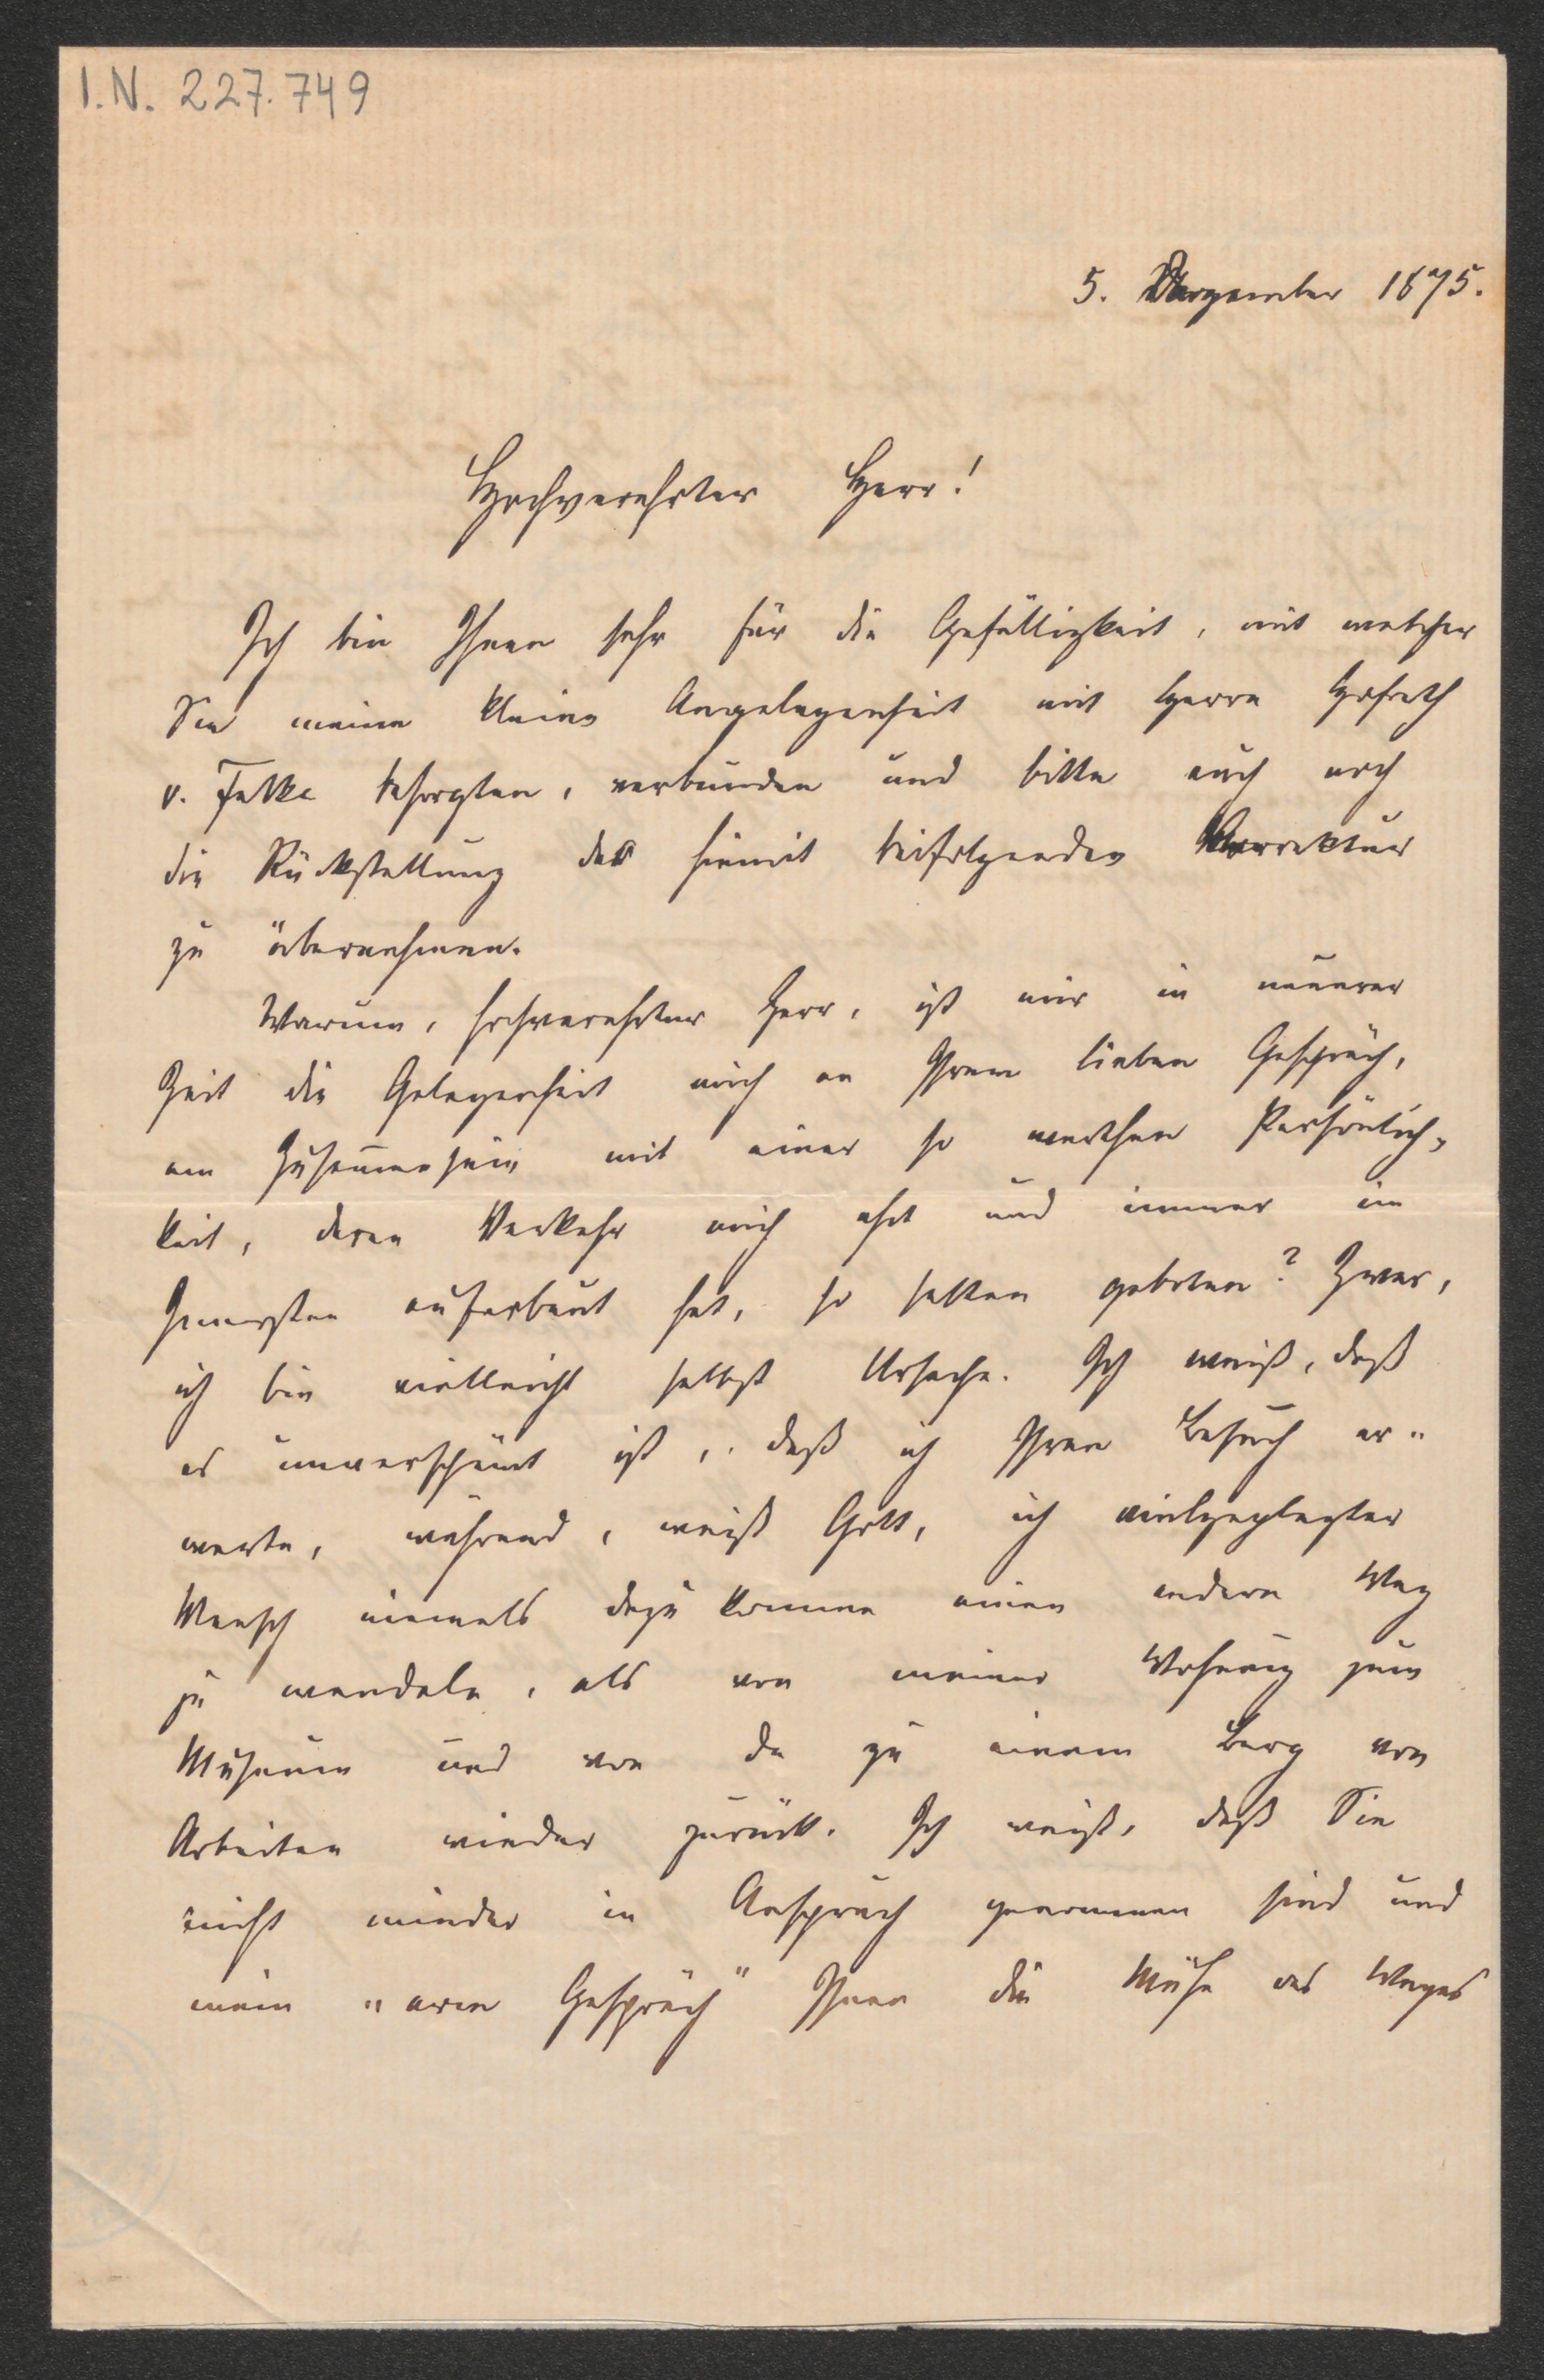 I.N. 227.749
5. Dezember 1875.
Hochverehrter Herr!
Ich bin Ihnen sehr für die Gefälligkeit, mit welcher
Sie meine kleine Angelegenheit mit Herrn Hofrath
v. Falke besorgten, verbunden und bitte auch noch
die Rückstellung der hiemit beifolgenden Korrektur
zu übernehmen.
Warum, hochverehrter Herr, ist mir in neuerer
Zeit die Gelegenheit mich an Ihrem lieben Gespräch,
am Zusammensein mit einer so werthen Persönlich-
keit, deren Verkehr mich ehrt und immer im
Innersten auferbaut hat, so selten geboten? Zwar,
ich bin vielleicht selbst Ursache. Ich weiß, daß
es unverschämt ist, daß ich Ihren Besuch er-
warte, während, weiß Gott, ich vielgeplagter
Mensch niemals dazu komme einen andern Weg
zu wandeln, als von meiner Wohnung zum
Museum und von da zu einem Berg von
Arbeiten wieder zurück. Ich weiß, daß Sie
nicht minder in Anspruch genommen sind und
mein "arm Gespräch" Ihnen die Mühe des Weges